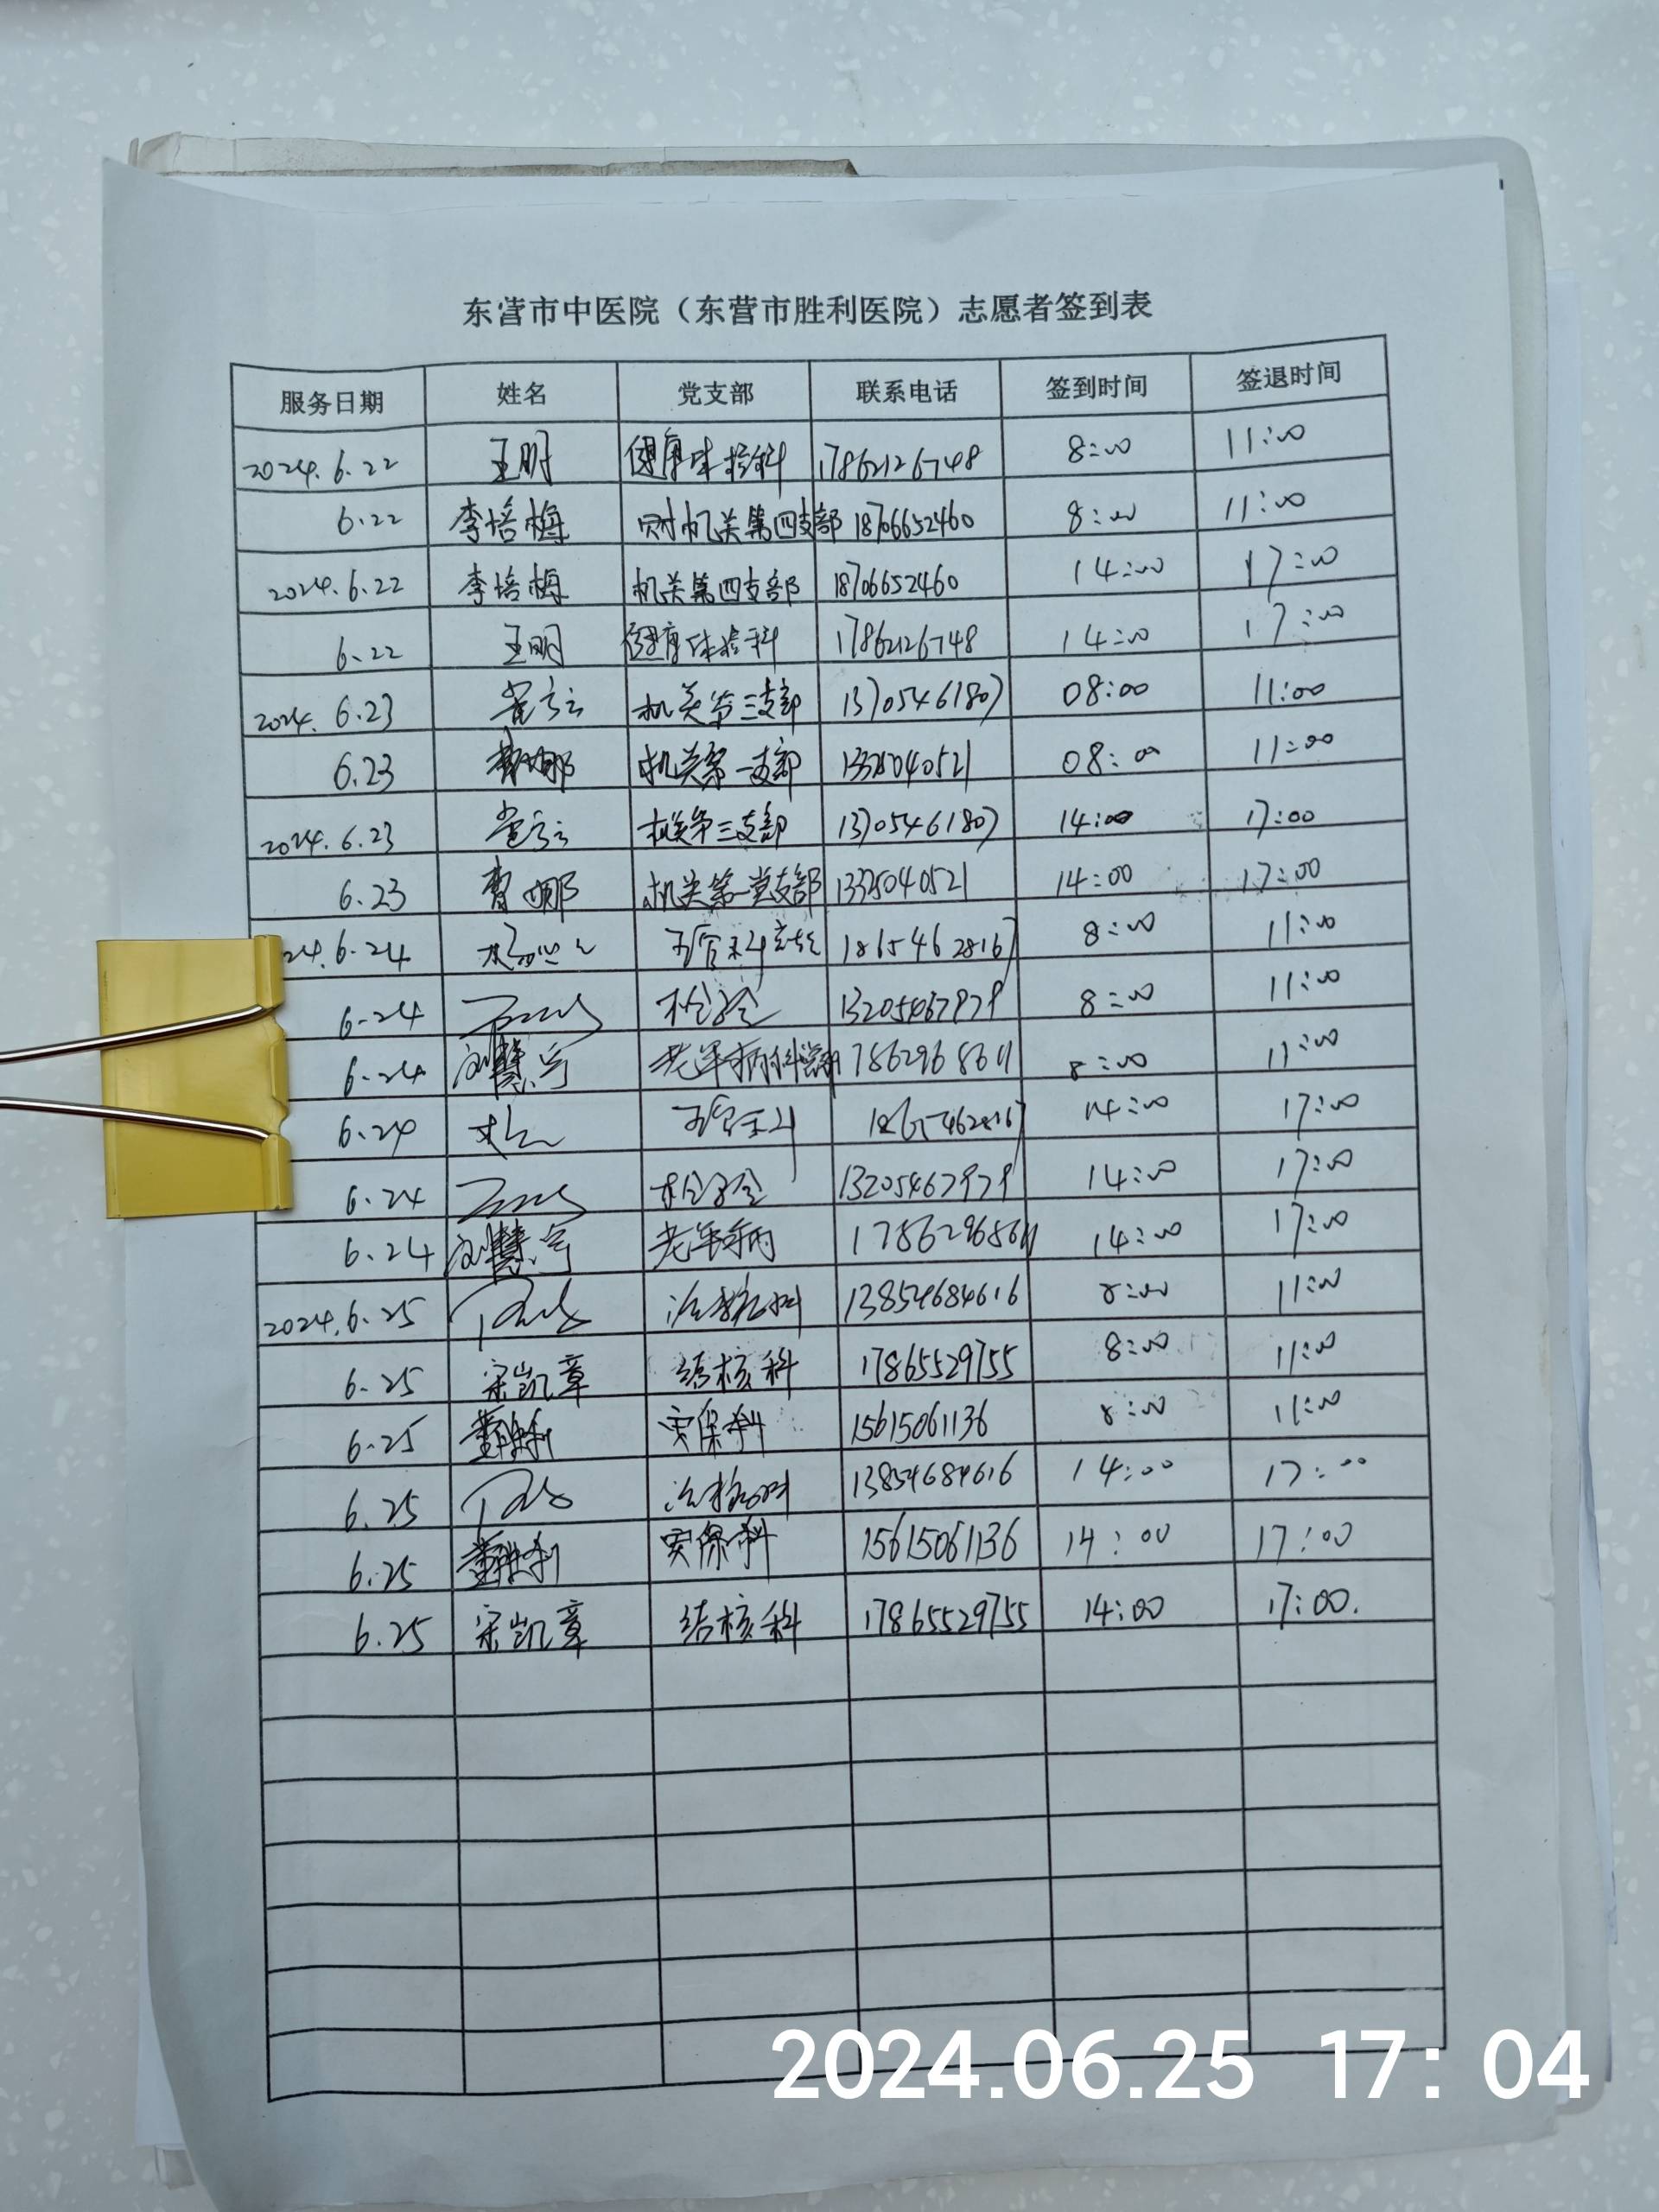 东营市中医院（东营市胜利医院）志愿者签到表
服务日期 姓名 党支部 联系电话 签到时间 签退时间
2024.6.22 王明 健康体检科 17862126748 8:00 11:00
6.22 李培梅 机关第四支部 18706652460 8:00 11:00
2024.6.22 李培梅 机关第四支部 18706652460 14:00 17:00
6.22 王明 健康体检科 17862126748 14:00 17:00
2024.6.23 机关第三支部 13705461807 08:00 11:00
6.23 机关第一支部 13325040521 08:00 11:00
2024.6.23 机关第三支部 13705461807 14:00 17:00
6.23 曹娜 机关第一党支部 13325040521 14:00 17:00
24.6.24 五官科 18654628167 8:00 11:00
6.24 检验 13205467979 8:00 11:00
6.24 刘慧宁 老年病科 17862968611 8:00 11:00
6.24 五官科 14:00 17:00
6.24 检验 13205467979 14:00 17:00
6.24 刘慧宁 老年病 14:00 17:00
2024.6.25 13854684616 8:00 11:00
6.25 宋凯章 结核科 17865529755 8:00 11:00
6.25 董胜利 15615061136 8:00 11:00
6.25 13854684616 14:00 17:00
6.25 董胜利 15615061136 14:00 17:00
6.25 宋凯章 结核科 17865529755 14:00 17:00.
2024.06.25 17:04